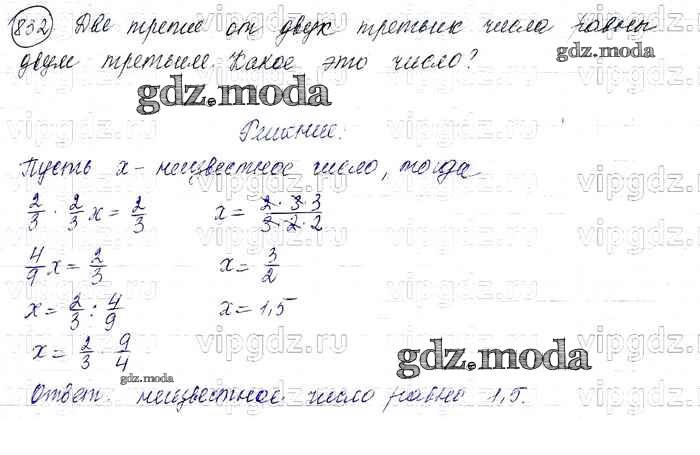 832) Две трети от двух третьих числа равны
двум третьим. Какое это число?
gdz.moda
gdz.moda
Решение:
Пусть x - неизвестное число, тогда
2/3 · 2/3 x = 2/3    x = 2·3·3/3·2·2
4/9 x = 2/3    x = 3/2
x = 2/3 : 4/9    x = 1,5
x = 2/3 · 9/4
gdz.moda
gdz.moda
Ответ: неизвестное число равно 1,5.
vipgdz.ru